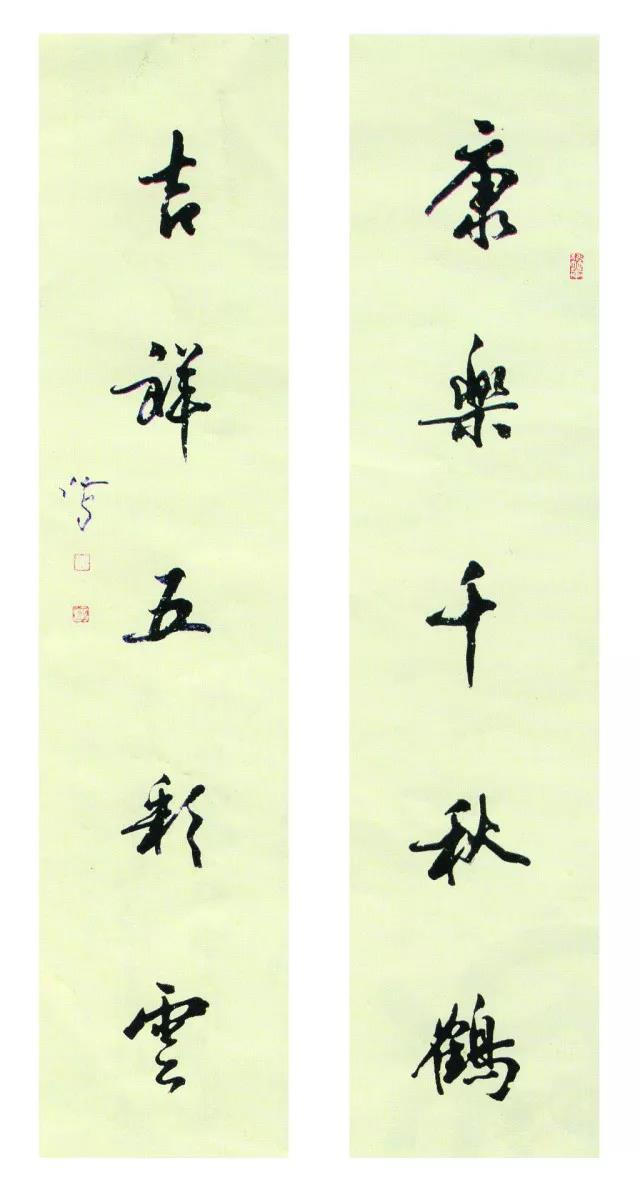 康樂千秋鶴
吉祥五彩雲